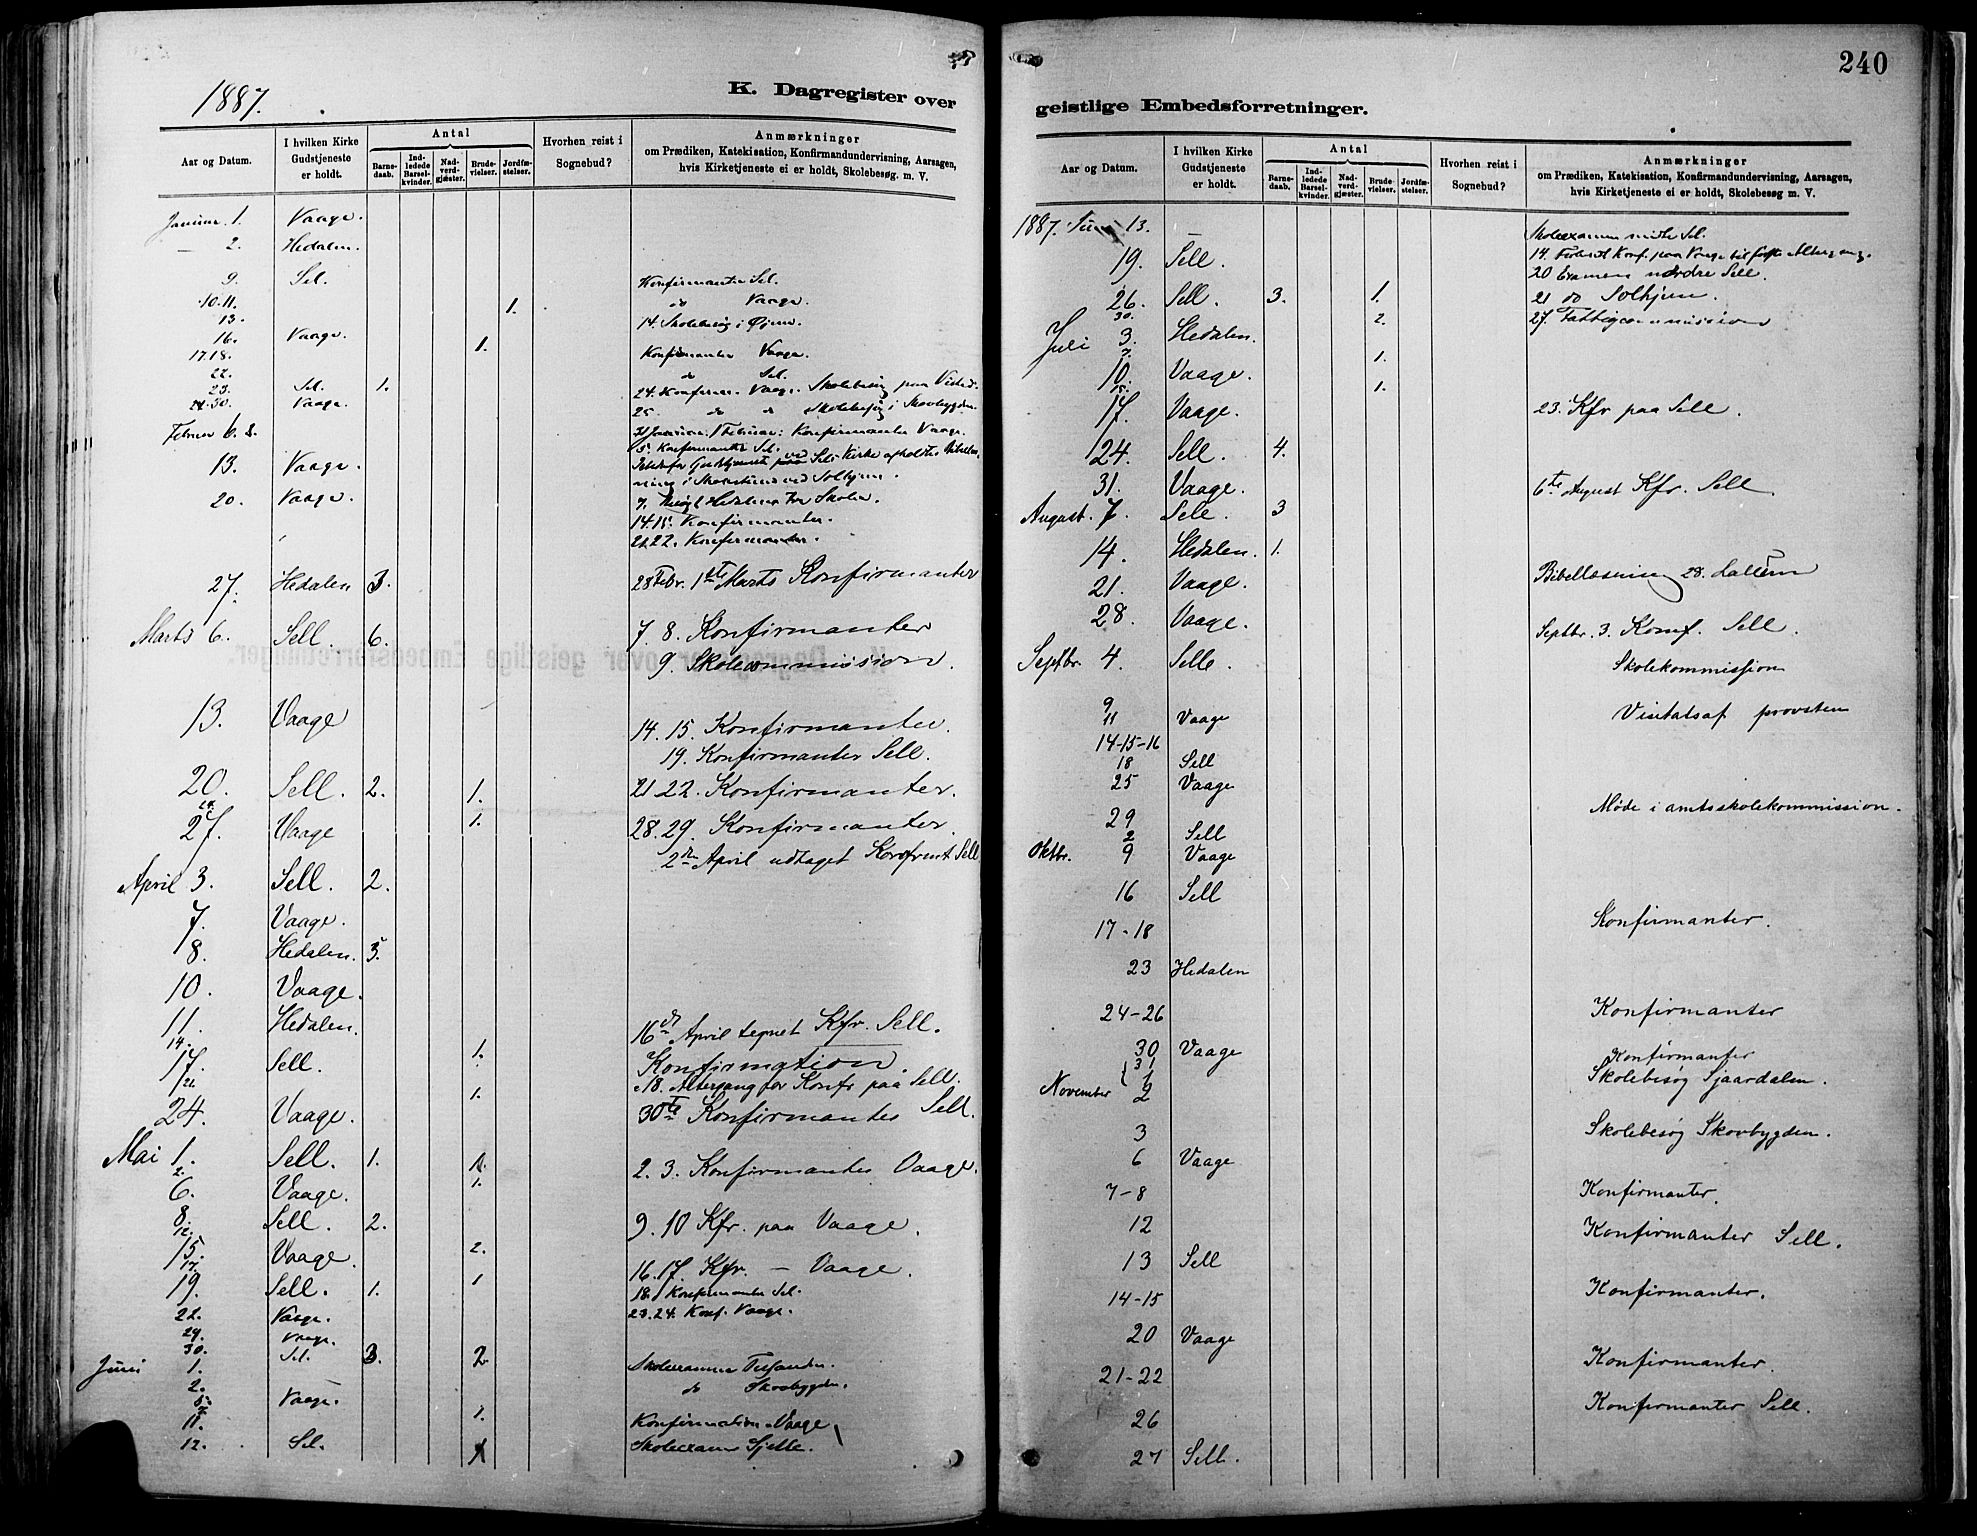 240
1887.
K. Dagregister over
Aar og Datum.
I hvilken Kirke Gudstjeneste er holdt.
Antal
Barnedaab.
Indledede Barselkvinder.
Nadverdgjæster.
Brudevielser.
Jordfæstelser.
Hvorhen reist i Sognebud?
Anmærkninger
om Prædiken, Katekisation, Konfirmandundervisning, Aarsagen,
hvis Kirketjeneste ei er holdt, Skolebesøg. m. V.
Januar 1. Vaage.
— 2. Hedalen.
9. Sel. Konfirmanter Sel.
10.11. 1. do Vaage.
13. 14. Skolebesøg i
16. Vaage. 1.
17.18. Konfirmanter Vaage.
22. do Sel.
23. Sel. 1. 24. Konfirm. Vaage. Skolebesøg paa
24.30. Vaage. 25. do do Skolebesøg i Skovbygden.
Februar 6. 31 Januar. 1 Februar: Konfirmanter Vaage.
5. Konfirmanter Sel.
13. Vaage. Istedetfor Gudstjeneste ved Sels Kirke afholdtes
ved Solhjem.
20. Vaage. 7. Hedalens Skoler.
14.15. Konfirmanter.
21.22. Konfirmanter.
27. Hedalen 3. 28 Febr. 1ste Marts Konfirmanter
Marts 6. Sell. 6. 7. 8. Konfirmanter
9. Skolecommission.
13. Vaage 14. 15. Konfirmanter.
19. Konfirmanter Sell.
20. Sell. 2. 1. 21 22. Konfirmanter.
27. Vaage 1. 28. 29. Konfirmanter.
2den April udtaget Konfirmt Sell
April 3. Sell. 2.
7. Vaage.
8. Hedalen. 5.
10. Vaage.
11. Hedalen. 16de April tegnet Kfr. Sell.
14. 1.
17. Sell. Konfirmation.
18. Altergang for Konfr paa Sell.
21. 1.
24. Vaage. 30te Konfirmanter Sell.
Mai 1. Sell. 1. 1. 2. 3. Konfirmanter Vaage.
2. 1.
6. Vaage.
8. Sell. 2. 9. 10 Kfr. paa Vaage.
12. 2.
15. Vaage. 16.17. Kfr. — Vaage.
17. 1
19. Sell. 1. 18. Konfirmanter Sel.
22. Vaage. 23.24. Konf. Vaage.
29. Vaage.
30. Sel. 3. 2
Juni 1. Skoleexamen Tessanden.
2. do Skovbygden.
5. Vaage.
7. 1.
11. Konfirmation Vaage
12. Sel. 1 Skoleexamen Sjelle.
geistlige Embedsforretninger.
Aar og Datum.
I hvilken Kirke Gudstjeneste er holdt.
Antal
Barnedaab.
Indledede Barselkvinder.
Nadverdgjæster.
Brudevielser.
Jordfæstelser.
Hvorhen reist i Sognebud?
Anmærkninger
om Prædiken, Katekisation, Konfirmandundervisning, Aarsagen,
hvis Kirketjeneste ei er holdt, Skolebesøg m. V.
1887. Juni 13. — Skoleexamen midtre Sel.
14. Konf. paa Vaage til første Altergang.
19. Sell. 20 Examen nordre Sell.
26. Sell. 3. 1. 21 do Solhjem.
30. 2. 27. Fattigcommission
Juli 3. Hedalen.
7. 1.
10. Vaage.
15. 1.
17. Vaage. 23. Kfr paa Sell.
24. Sell. 4.
31. Vaage. 6te August Kfr. Sell.
August. 7. Sell. 3
14. Hedalen. 1.
21. Vaage. Bibellæsning 28. Lalum
28. Vaage. Septbr. 3. Konf. Sell.
Septbr. 4. Selle. Skolekommission
9
11 Vaage Visitats af provsten
14-15-16
18 Sell
25 Vaage
29 Møde i amtsskolekommission.
Oktbr. 2 Sell
9 Vaage
16 Sell
17-18 Konfirmanter.
23 Hedalen
24-26 Konfirmanter
30 Vaage
31 Konfirmanter
November 1 Skolebesøg Sjaardalen.
2
3 Skolebesøg Skovbygden.
6 Vaage
7-8 Konfirmanter.
12 Konfirmanter Sell.
13 Sell
14-15 Konfirmanter.
20 Vaage
21-22 Konfirmanter.
26 Konfirmanter Sell.
27 Sell.